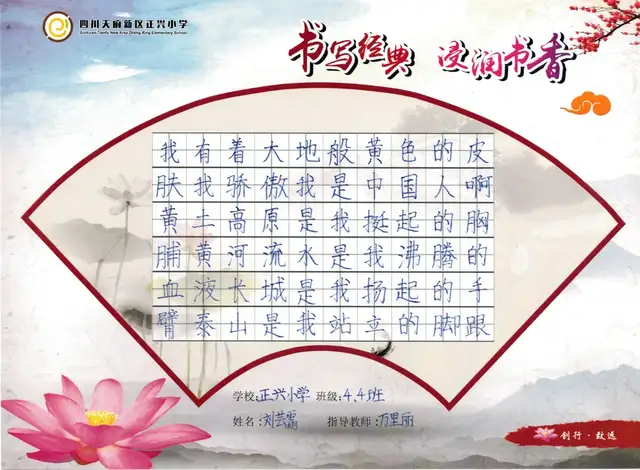 四川天府新区正兴小学
Sichuan Tianfu New Area Zheng Xing Elementary School
书写经典 浸润书香
我有着大地般黄色的皮
肤我骄傲我是中国人啊
黄土高原是我挺起的胸
脯黄河流水是我沸腾的
血液长城是我扬起的手
臂泰山是我站立的脚跟
学校:正兴小学 班级:4.4班
姓名:刘芸霜 指导教师:万里丽
创行·致远